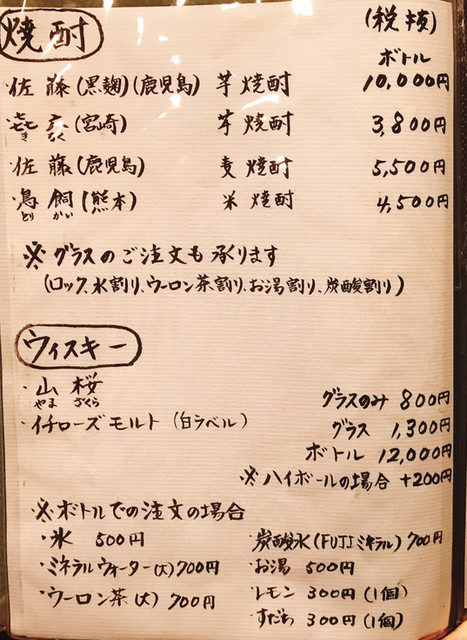 焼酎 (税抜)
ボトル
・佐藤(黒麹)(鹿児島) 芋焼酎 10,000円
(宮崎) 芋焼酎 3,800円
・佐藤(鹿児島) 麦焼酎 5,500円
・鳥飼(熊本) 米焼酎 4,500円
とり かい
※グラスのご注文も承ります
(ロック、水割り、ウーロン茶割り、お湯割り、炭酸割り)
ウィスキー
・山桜 グラスのみ 800円
やま ざくら
・イチローズモルト (白ラベル) グラス 1,300円
ボトル 12,000円
※ハイボールの場合 +200円
※ボトルでの注文の場合
・氷 500円
・ミネラルウォーター(大)700円
・ウーロン茶(大) 700円
炭酸水(FUJIミネラル) 700円
・お湯 500円
・レモン 300円(1個)
・すだち 300円(1個)